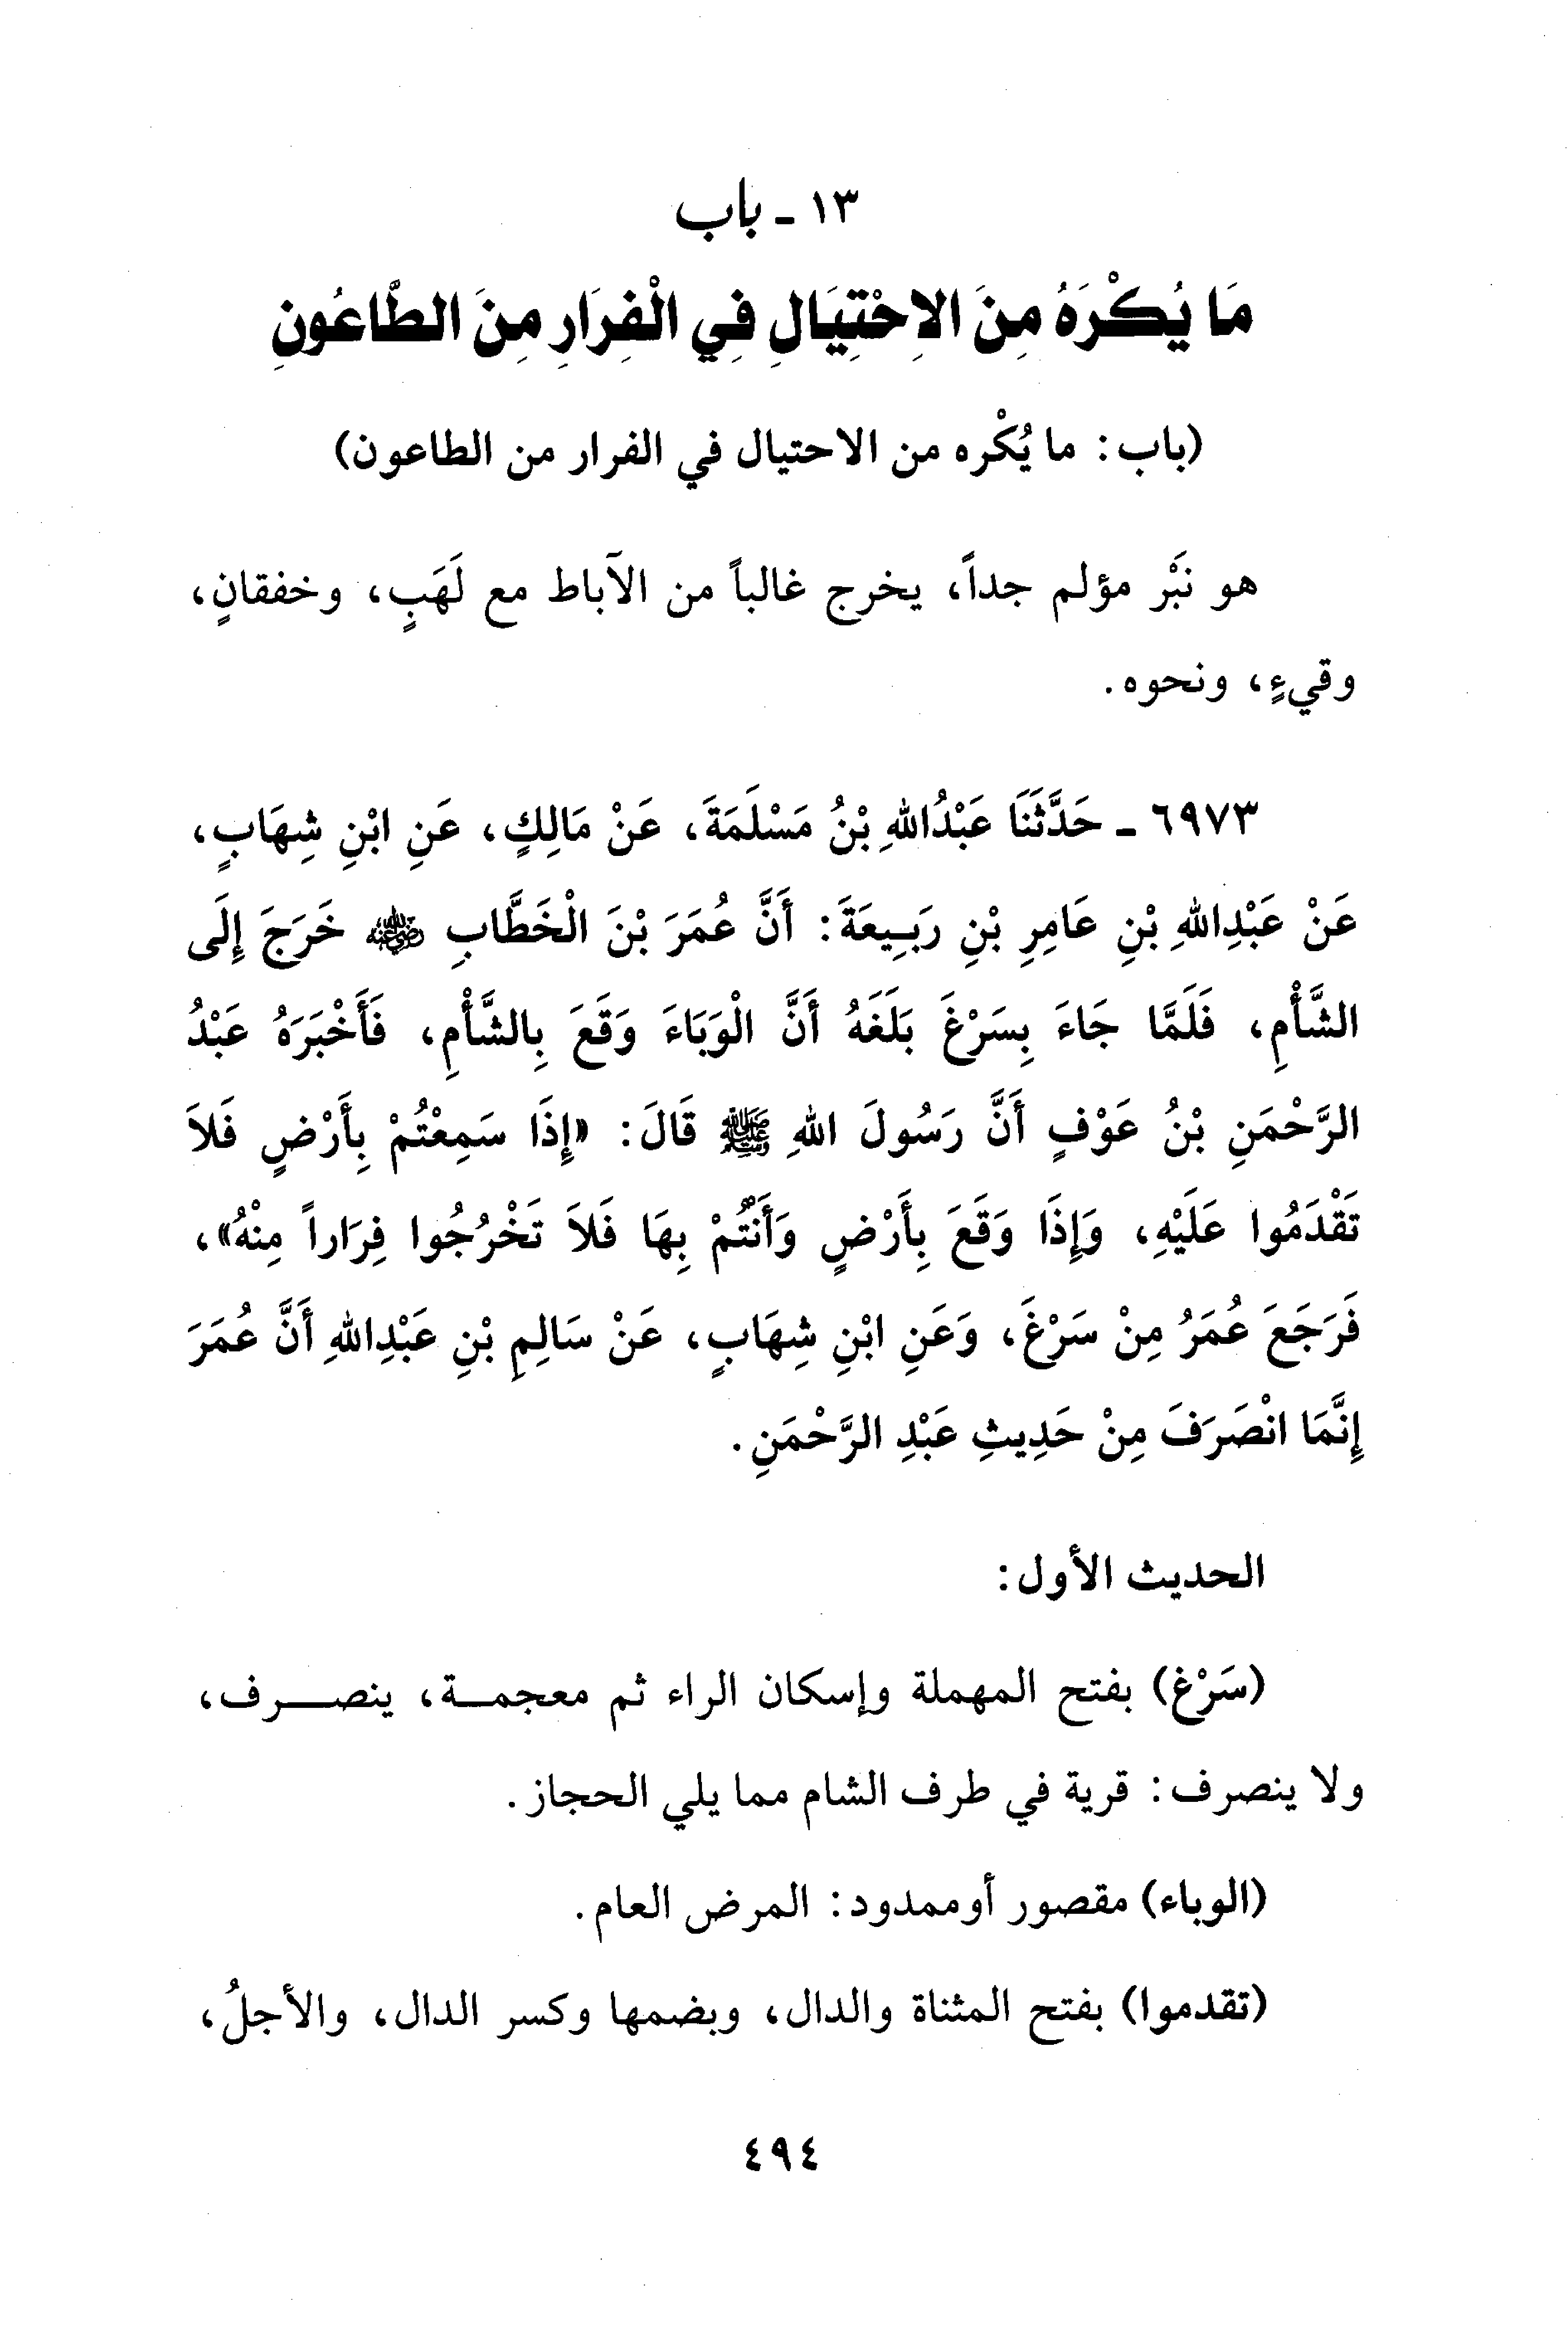 ١٣ - باب
مَا يُكْرَهُ مِنَ الاِحْتِيَالِ فِي الْفِرَارِ مِنَ الطَّاعُونِ
(باب: ما يُكْره من الاحتيال في الفرار من الطاعون)
هو نَبْر مؤلم جداً، يخرج غالباً من الآباط مع لَهَبٍ، وخفقانٍ،
وقيءٍ، ونحوه.
٦٩٧٣ - حَدَّثَنَا عَبْدُاللهِ بْنُ مَسْلَمَةَ، عَنْ مَالِكٍ، عَنِ ابْنِ شِهَابٍ،
عَنْ عَبْدِاللهِ بْنِ عَامِرِ بْنِ رَبِيعَةَ: أَنَّ عُمَرَ بْنَ الْخَطَّابِ رضي الله عنه خَرَجَ إِلَى
الشَّأْمِ، فَلَمَّا جَاءَ بِسَرْغَ بَلَغَهُ أَنَّ الْوَبَاءَ وَقَعَ بِالشَّأْمِ، فَأَخْبَرَهُ عَبْدُ
الرَّحْمَنِ بْنُ عَوْفٍ أَنَّ رَسُولَ اللهِ ﷺ قَالَ: «إِذَا سَمِعْتُمْ بِأَرْضٍ فَلاَ
تَقْدَمُوا عَلَيْهِ، وَإِذَا وَقَعَ بِأَرْضٍ وَأَنْتُمْ بِهَا فَلاَ تَخْرُجُوا فِرَاراً مِنْهُ»،
فَرَجَعَ عُمَرُ مِنْ سَرْغَ، وَعَنِ ابْنِ شِهَابٍ، عَنْ سَالِمِ بْنِ عَبْدِاللهِ أَنَّ عُمَرَ
إِنَّمَا انْصَرَفَ مِنْ حَدِيثِ عَبْدِ الرَّحْمَنِ.
الحديث الأول:
(سَرْغ) بفتح المهملة وإسكان الراء ثم معجمـة، ينصـرف،
ولا ينصرف: قرية في طرف الشام مما يلي الحجاز.
(الوباء) مقصور أوممدود: المرض العام.
(تقدموا) بفتح المثناة والدال، وبضمها وكسر الدال، والأجلُ،
٤٩٤